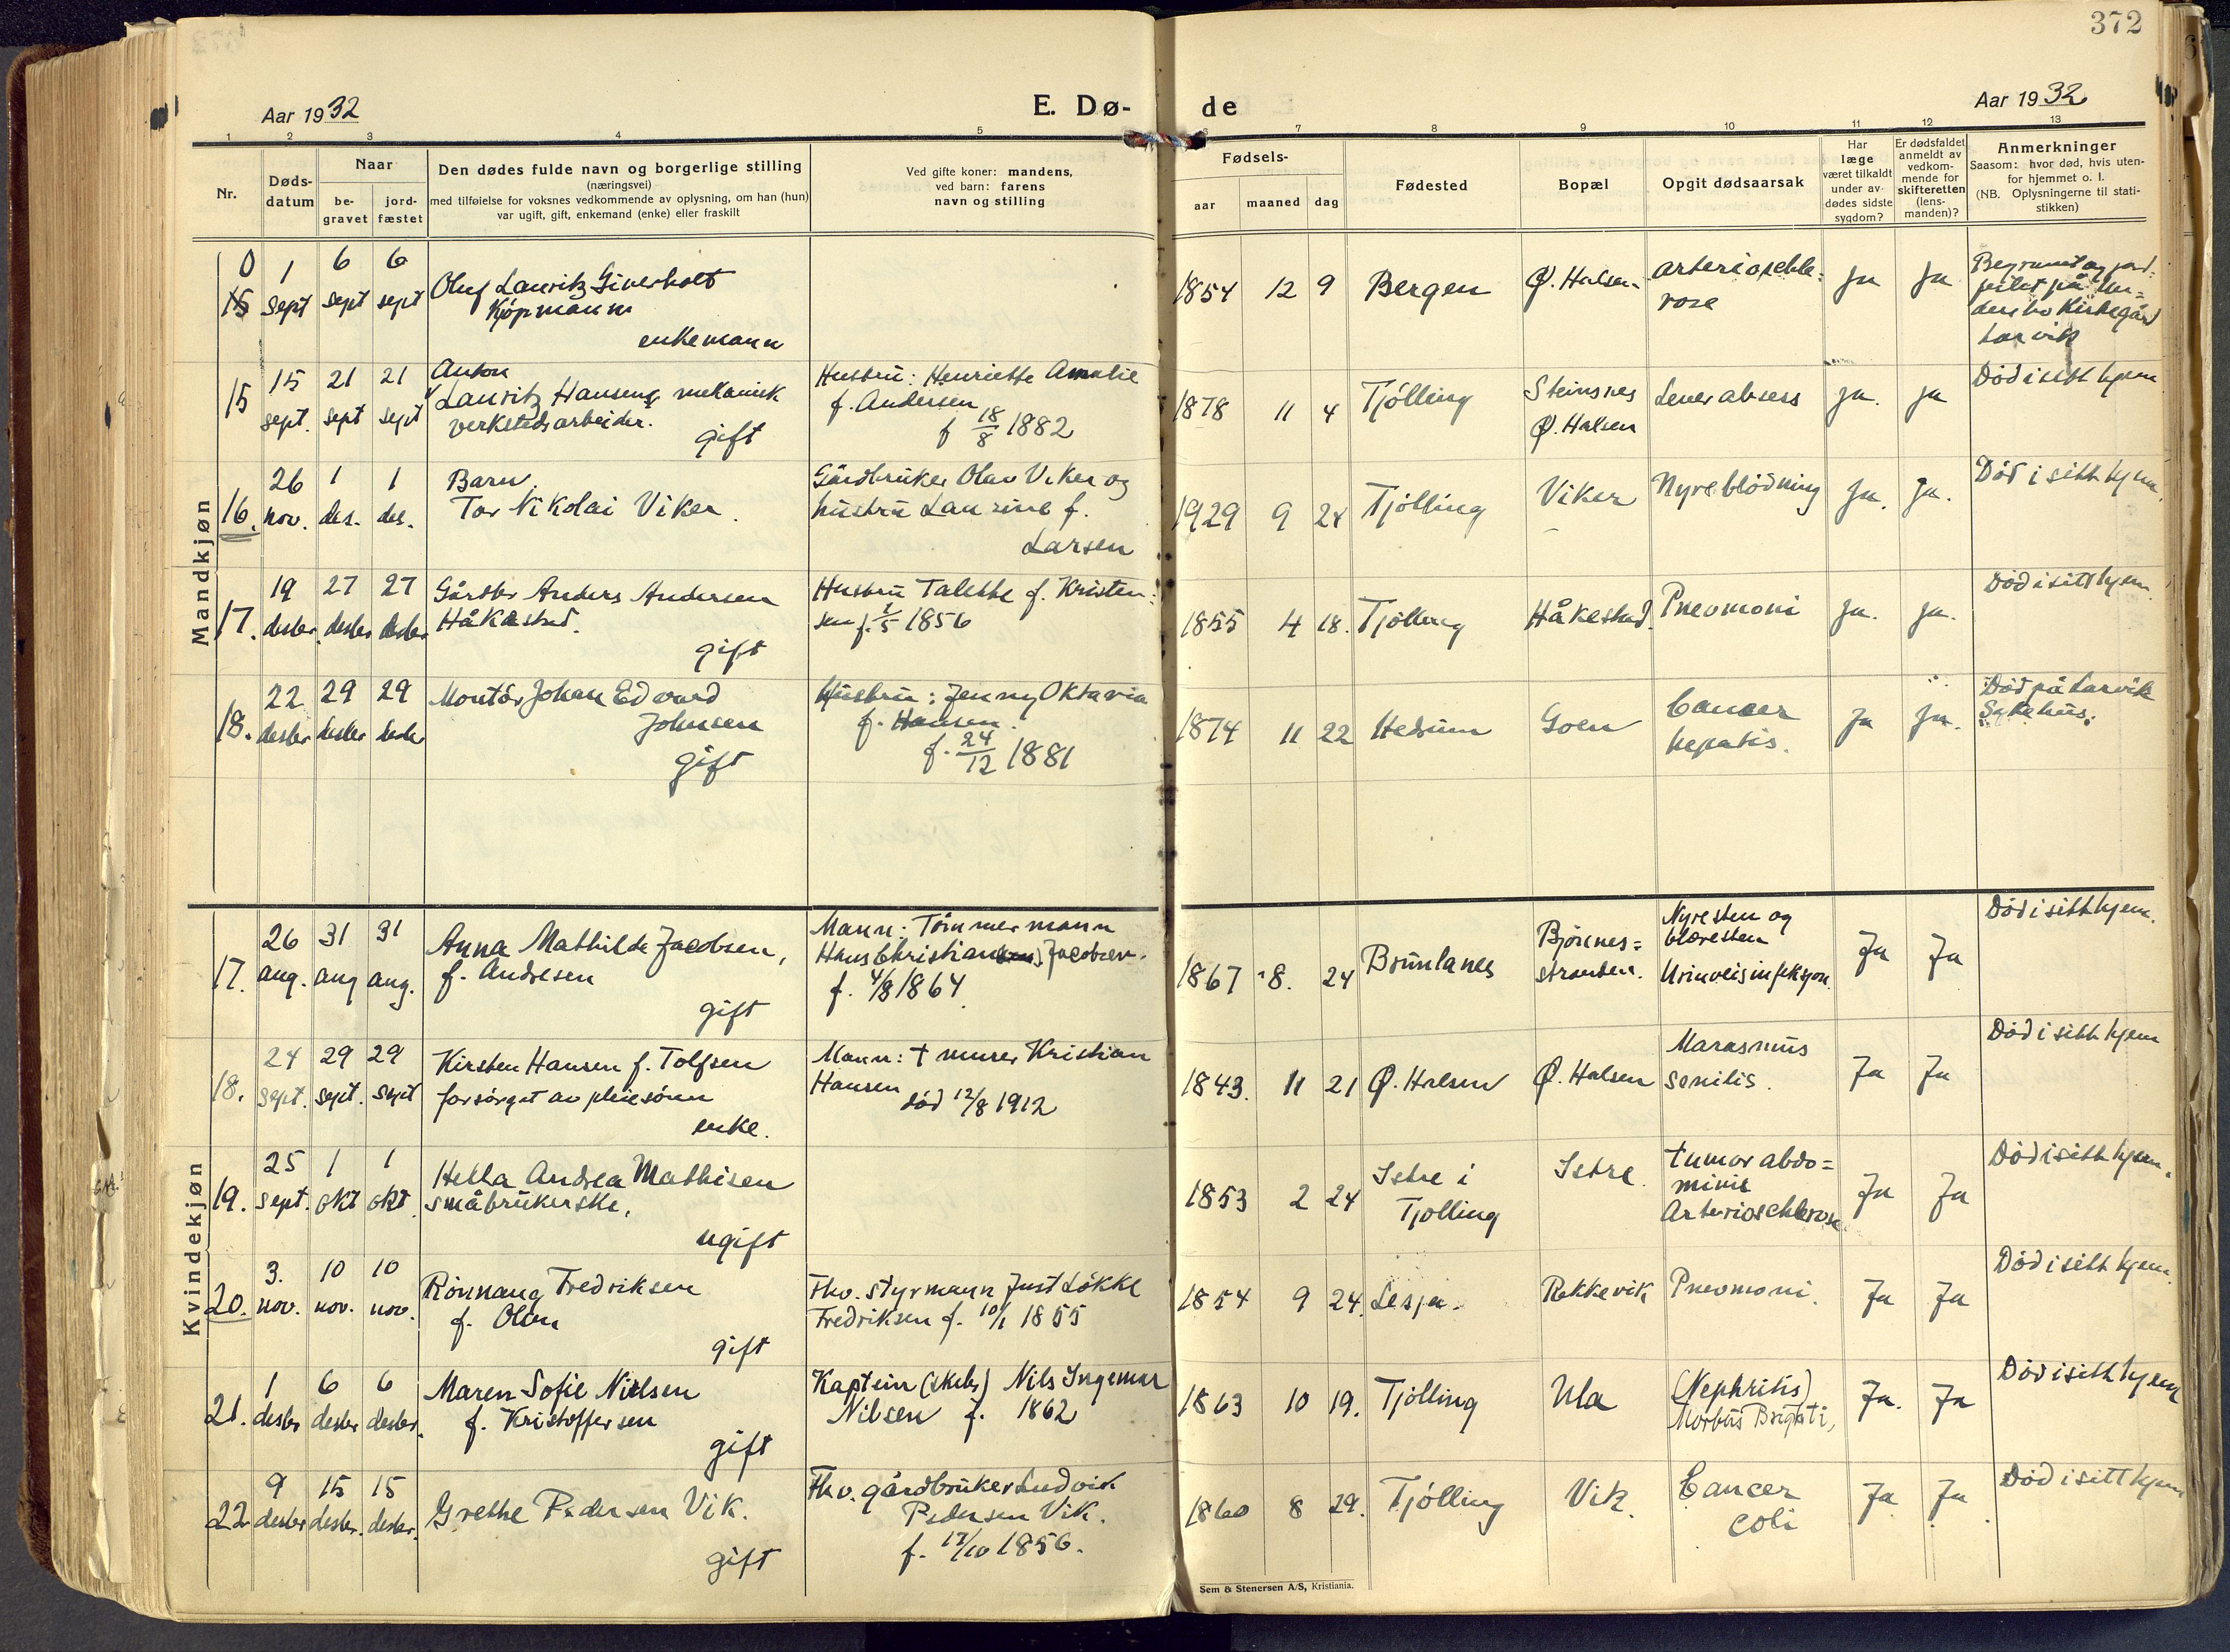 372
Aar 1932
E. Dø-
de
Aar 1932
1 2 3 4 5 6 7 8 9 10 11 12 13
Nr.
Døds-
datum
Naar
be-
gravet
jord-
fæstet
Den dødes fulde navn og borgerlige stilling
(næringsvei)
med tilføielse for voksnes vedkommende av oplysning, om han (hun)
var ugift, gift, enkemand (enke) eller fraskilt
Ved gifte koner: mandens,
ved barn: farens
navn og stilling
Fødsels-
aar maaned dag
Fødested
Bopæl
Opgit dødsaarsak
Har
læge
været tilkaldt
under av-
dødes sidste
sygdom?
Er dødsfaldet
anmeldt av
vedkom-
mende for
skifteretten
(lens-
manden)?
Anmerkninger
Saasom: hvor død, hvis uten-
for hjemmet o. l.
(NB. Oplysningerne til stati-
stikken)
Mandkjøn
0
15
1
sept
6
sept
6
sept
Oluf Lauritz Giverholt
Kjøpmann
enkemann
1854 12 9
Bergen
Ø. Halsen
arterioschle=
rose
Ja
Ja
Begravet og jord-
festet på
Kirkegård
Larvik
15
15
sept.
21
sept
21
sept
Anton
Lauritz Hansen, mekanisk
verkstedsarbeider.
gift
Hustru: Henriette Amalie
f. Andersen
f 18/8 1882
1878 11 4
Tjølling
Steinsnes
Ø. Halsen
Leverabsess
Ja.
Ja
Død i sitt hjem
16.
26
nov.
1
des.
1
des.
Barn
Tor Nikolai Viker.
Gårdbruker Olav Viker og
hustru Laurine f.
Larsen
1929 9 24
Tjølling
Viker
Nyreblødning
Ja.
Ja.
Død i sitt hjem.
17.
19
desbr.
27
desbr
27
desbr
Gårdbr Anders Andersen
Håkestad.
gift
Hustru Talette f. Kristen=
sen f. 1/5 1856
1855 4 18.
Tjølling
Håkestad.
Pneomoni
Ja.
Ja.
Død i sitt hjem
18.
22
desbr
29
desbr
29
desbr
Montør Johan Edvard
Johnsen
gift
Hustru: Jenny Oktavia
f. Hansen.
f. 24/12 1881
1874 11 22
Hedrum
Goen
Cancer
hepatis.
Ja
Ja.
Død på Larvik
Sykehus.
Kvindekjøn
17.
26
aug.
31
aug
31
aug.
Anna Mathilde Jacobsen,
f. Andresen
gift
Mann: Tømmermann
Hans Christian Jacobsen.
f. 4/8 1864
1867 8. 24
Brunlanes
Bjønnes=
stranden.
Nyresten og
blæresten
Urinveisinfeksjon.
Ja
Ja
Død i sitt hjem.
18.
24
sept.
29
sept.
29
sept
Kirsten Hansen f. Tolfsen
forsørget av pleiesønn
enke.
Mann: † murer Kristian
Hansen
død 12/8 1912
1843. 11 21
Ø. Halsen
Ø. Halsen
Marasmus
senilis.
Ja
Ja
Død i sitt hjem
19.
25
sept.
1
okt
1
okt.
Hella Andrea Mathisen
småbrukerske,
ugift
1853 2 24
Istre i
Tjølling
Istre.
tumor abdo=
minis
Arterioschlerose
Ja
Ja
Død i sitt hjem.
20.
3.
nov.
10
nov.
10
nov.
Rønnaug Fredriksen
f. Olsen
gift
Fhv. styrmann Just Løkke
Fredriksen f. 10/1 1855
1854 9 24.
Lesja.
Rekkevik
Pneomoni.
Ja
Ja
Død i sitt hjem.
21.
1
desbr
6
desbr
6
desbr.
Maren Sofie Nielsen
f. Kristoffersen
gift
Kaptein (skibs) Nils Ingemar
Nilsen f. 1862
1863 10 19.
Tjølling
Ula
(Nephritis)
Morbus Brighti,
Ja.
Ja
Død i sitt hjem
22
9
desbr
15
desbr.
15
desbr.
Grethe Pedersen Vik.
gift
Fhv. gårdbruker Ludvik
Pedersen Vik.
f. 17/10 1856.
1860 8 29.
Tjølling
Vik.
Cancer
coli
Ja
Ja
Død i sitt hjem
Sem & Stenersen A/S, Kristiania.